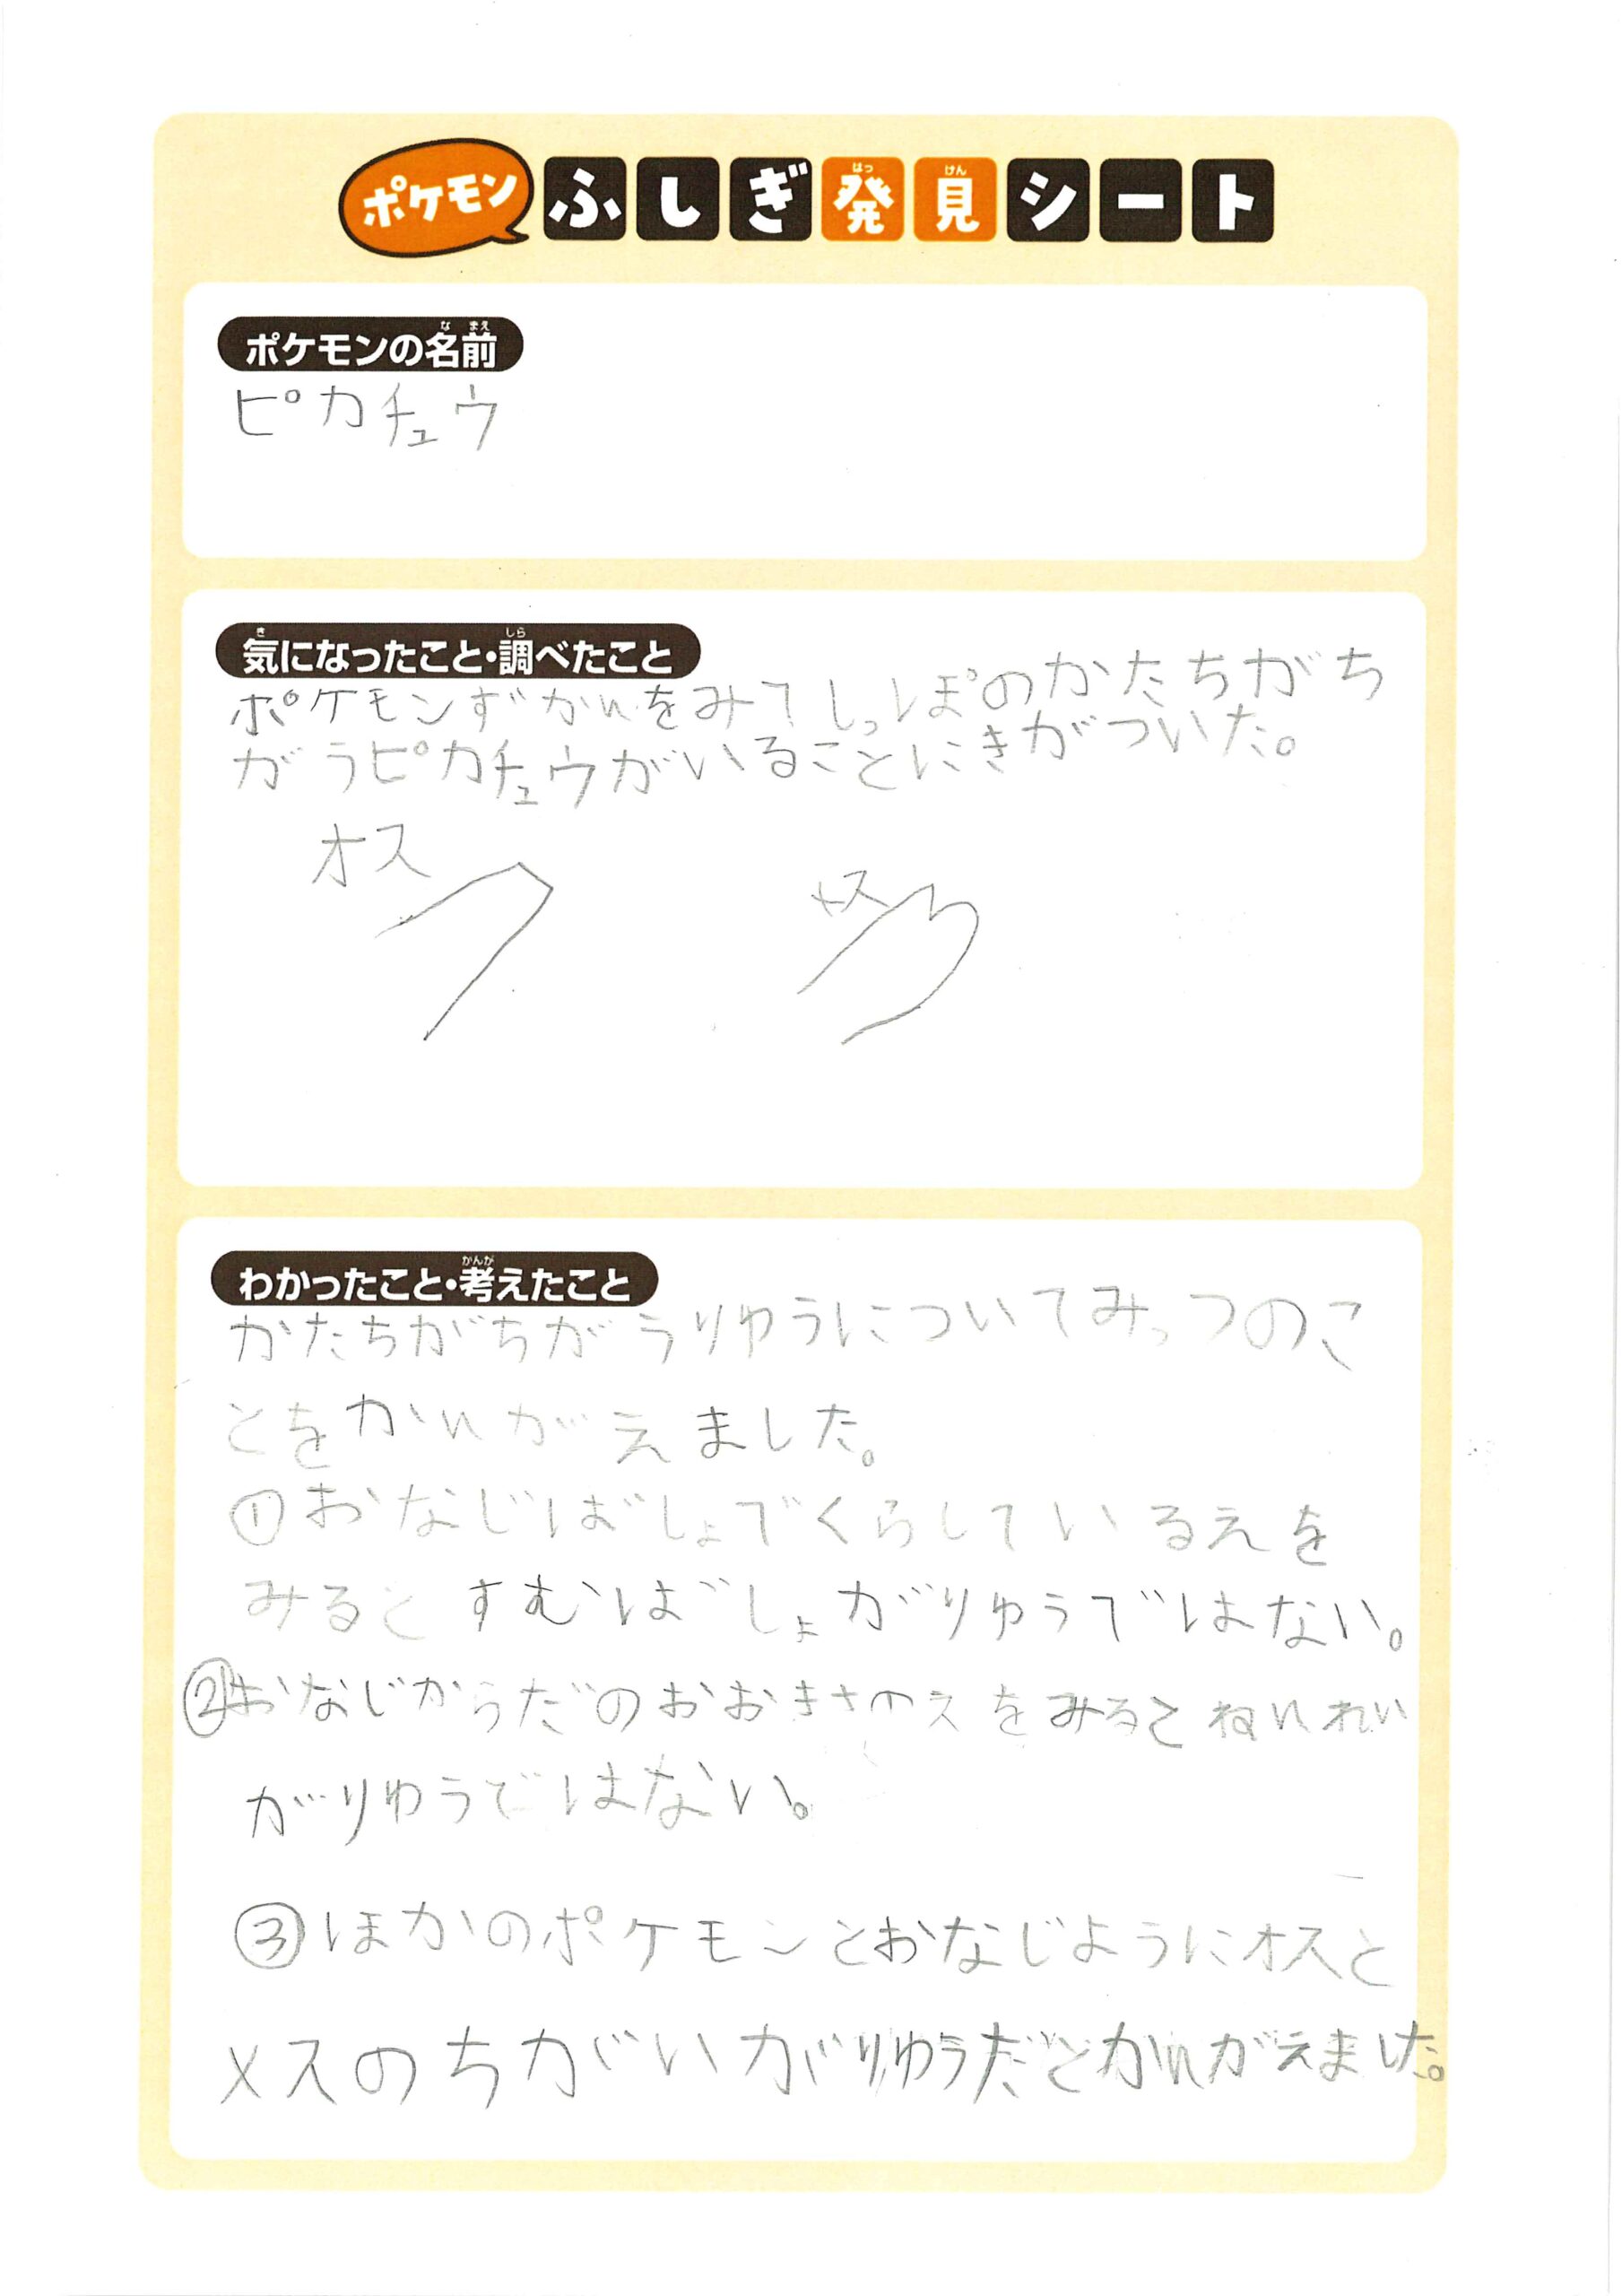 ポケモンふしぎ発見シート
はっ けん
ポケモンの名前
な まえ
ピカチュウ
気になったこと・調べたこと
き しら
ポケモンずかんをみてしっぽのかたちがち
がうピカチュウがいることにきがついた。
オス
メス
わかったこと・考えたこと
かんが
かたちがちがうりゆうについてみっつのこ
とをかんがえました。
①おなじばしょでくらしているえを
みるとすむばしょがりゆうではない。
②おなじからだのおおきさのえをみるとねんれい
がりゆうではない。
③ほかのポケモンとおなじようにオスと
メスのちがいがりゆうだとかんがえました。